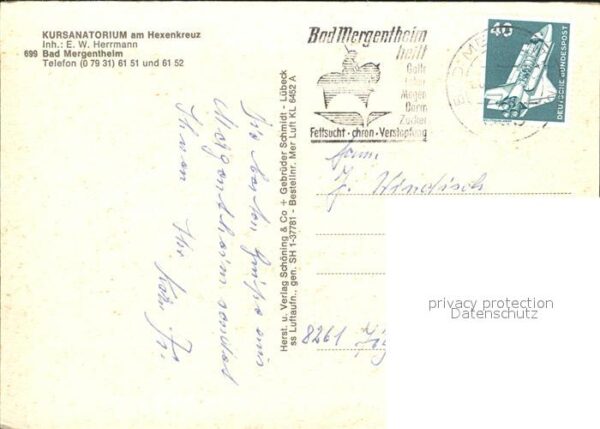 KURSANATORIUM am Hexenkreuz
Inh.: E. W. Herrmann
699 Bad Mergentheim
Telefon (0 79 31) 61 51 und 61 52
Die besten Grüße aus
Mergentheim sendet
Ihnen Ihr
Herst. u. Verlag Schöning & Co + Gebrüder Schmidt · Lübeck
ss Luftaufn., gen. SH 1-37781 - Bestellnr. Mer Luft KL 6452 A
Bad Mergentheim
heilt
Galle
Leber
Magen
Darm
Zucker
Fettsucht · chron · Verstopfung
40
DEUTSCHE BUNDESPOST
J. Windisch
8261
privacy protection
Datenschutz